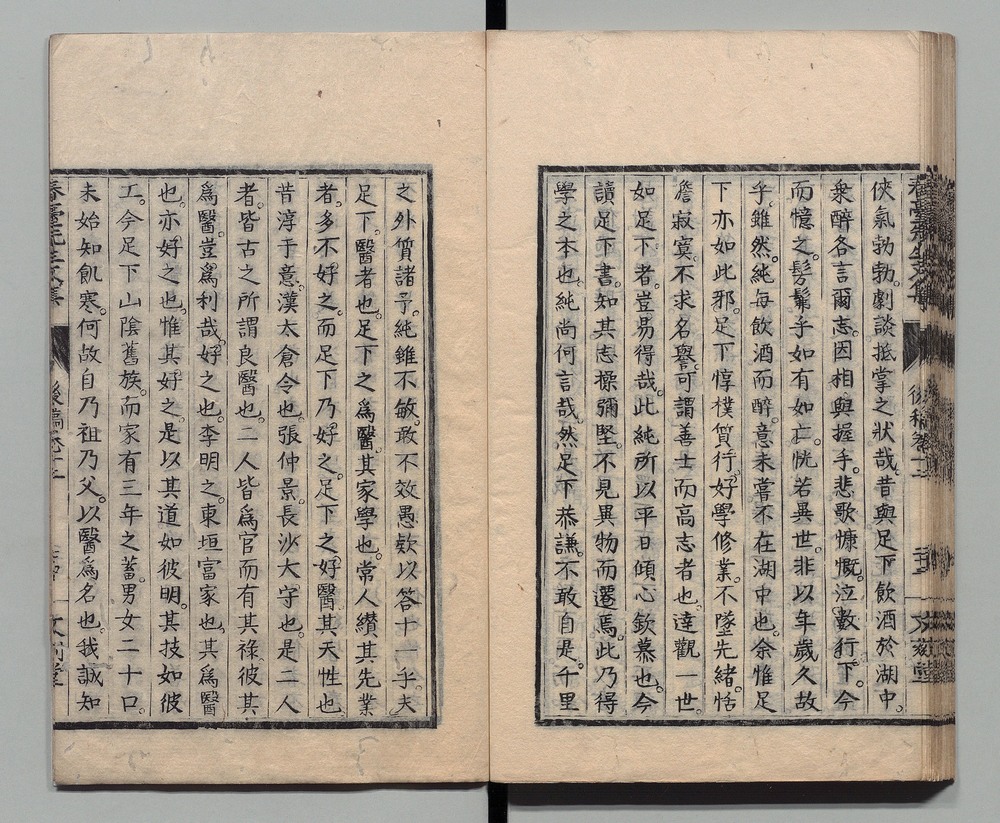 俠氣勃勃。劇談抵掌之狀哉。昔與足下飲酒於湖中。
衆醉各言爾志。因相與握手。悲歌慷慨。泣數行下。今
而憶之。髣髴乎如有如亡。恍若異世。非以年歲久故
乎。雖然。純每飲酒而醉。意未嘗不在湖中也。余惟足
下亦如此邪。足下惇樸質行。好學修業。不墜先緒。恬
澹寂寞。不求名譽。可謂善士而高志者也。達觀一世。
如足下者。豈易得哉。此純所以平日傾心欽慕也。今
讀足下書。知其志操彌堅。不見異物而遷焉。此乃得
學之本也。純尚何言哉。然足下恭謙。不敢自是。千里
之外質諸予。純雖不敏。敢不效愚欵以答十一乎。夫
足下。醫者也。足下之爲醫。其家學也。常人纘其先業
者。多不好之。而足下乃好之。足下之好醫。其天性也。
昔淳于意。漢太倉令也。張仲景。長沙大守也。是二人
者。皆古之所謂良醫也。二人皆爲官而有其祿。彼其
爲醫。豈爲利哉。好之也。李明之。東垣富家也。其爲醫
也。亦好之也。惟其好之。是以其道如彼明。其技如彼
工。今足下山陰舊族。而家有三年之蓄。男女二十口。
未始知飢寒。何故自乃祖乃父。以醫爲名也。我誠知
春臺先生文集
後稿卷十三